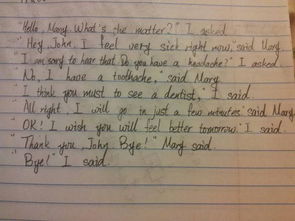 "Hello, Mary. What's the matter?" I asked.
"Hey, John. I feel very sick right now, said Mary.
"I am sorry to hear that. Do you have a headache?" I asked.
"No, I have a toothache," said Mary
"I think you must to see a dentist," I said.
"All right! I will go in just a few minutes. said Mary.
"OK! I wish you will feel better tomorrow." I said.
"Thank you, John. Bye!" Mary said.
"Bye!" I said.